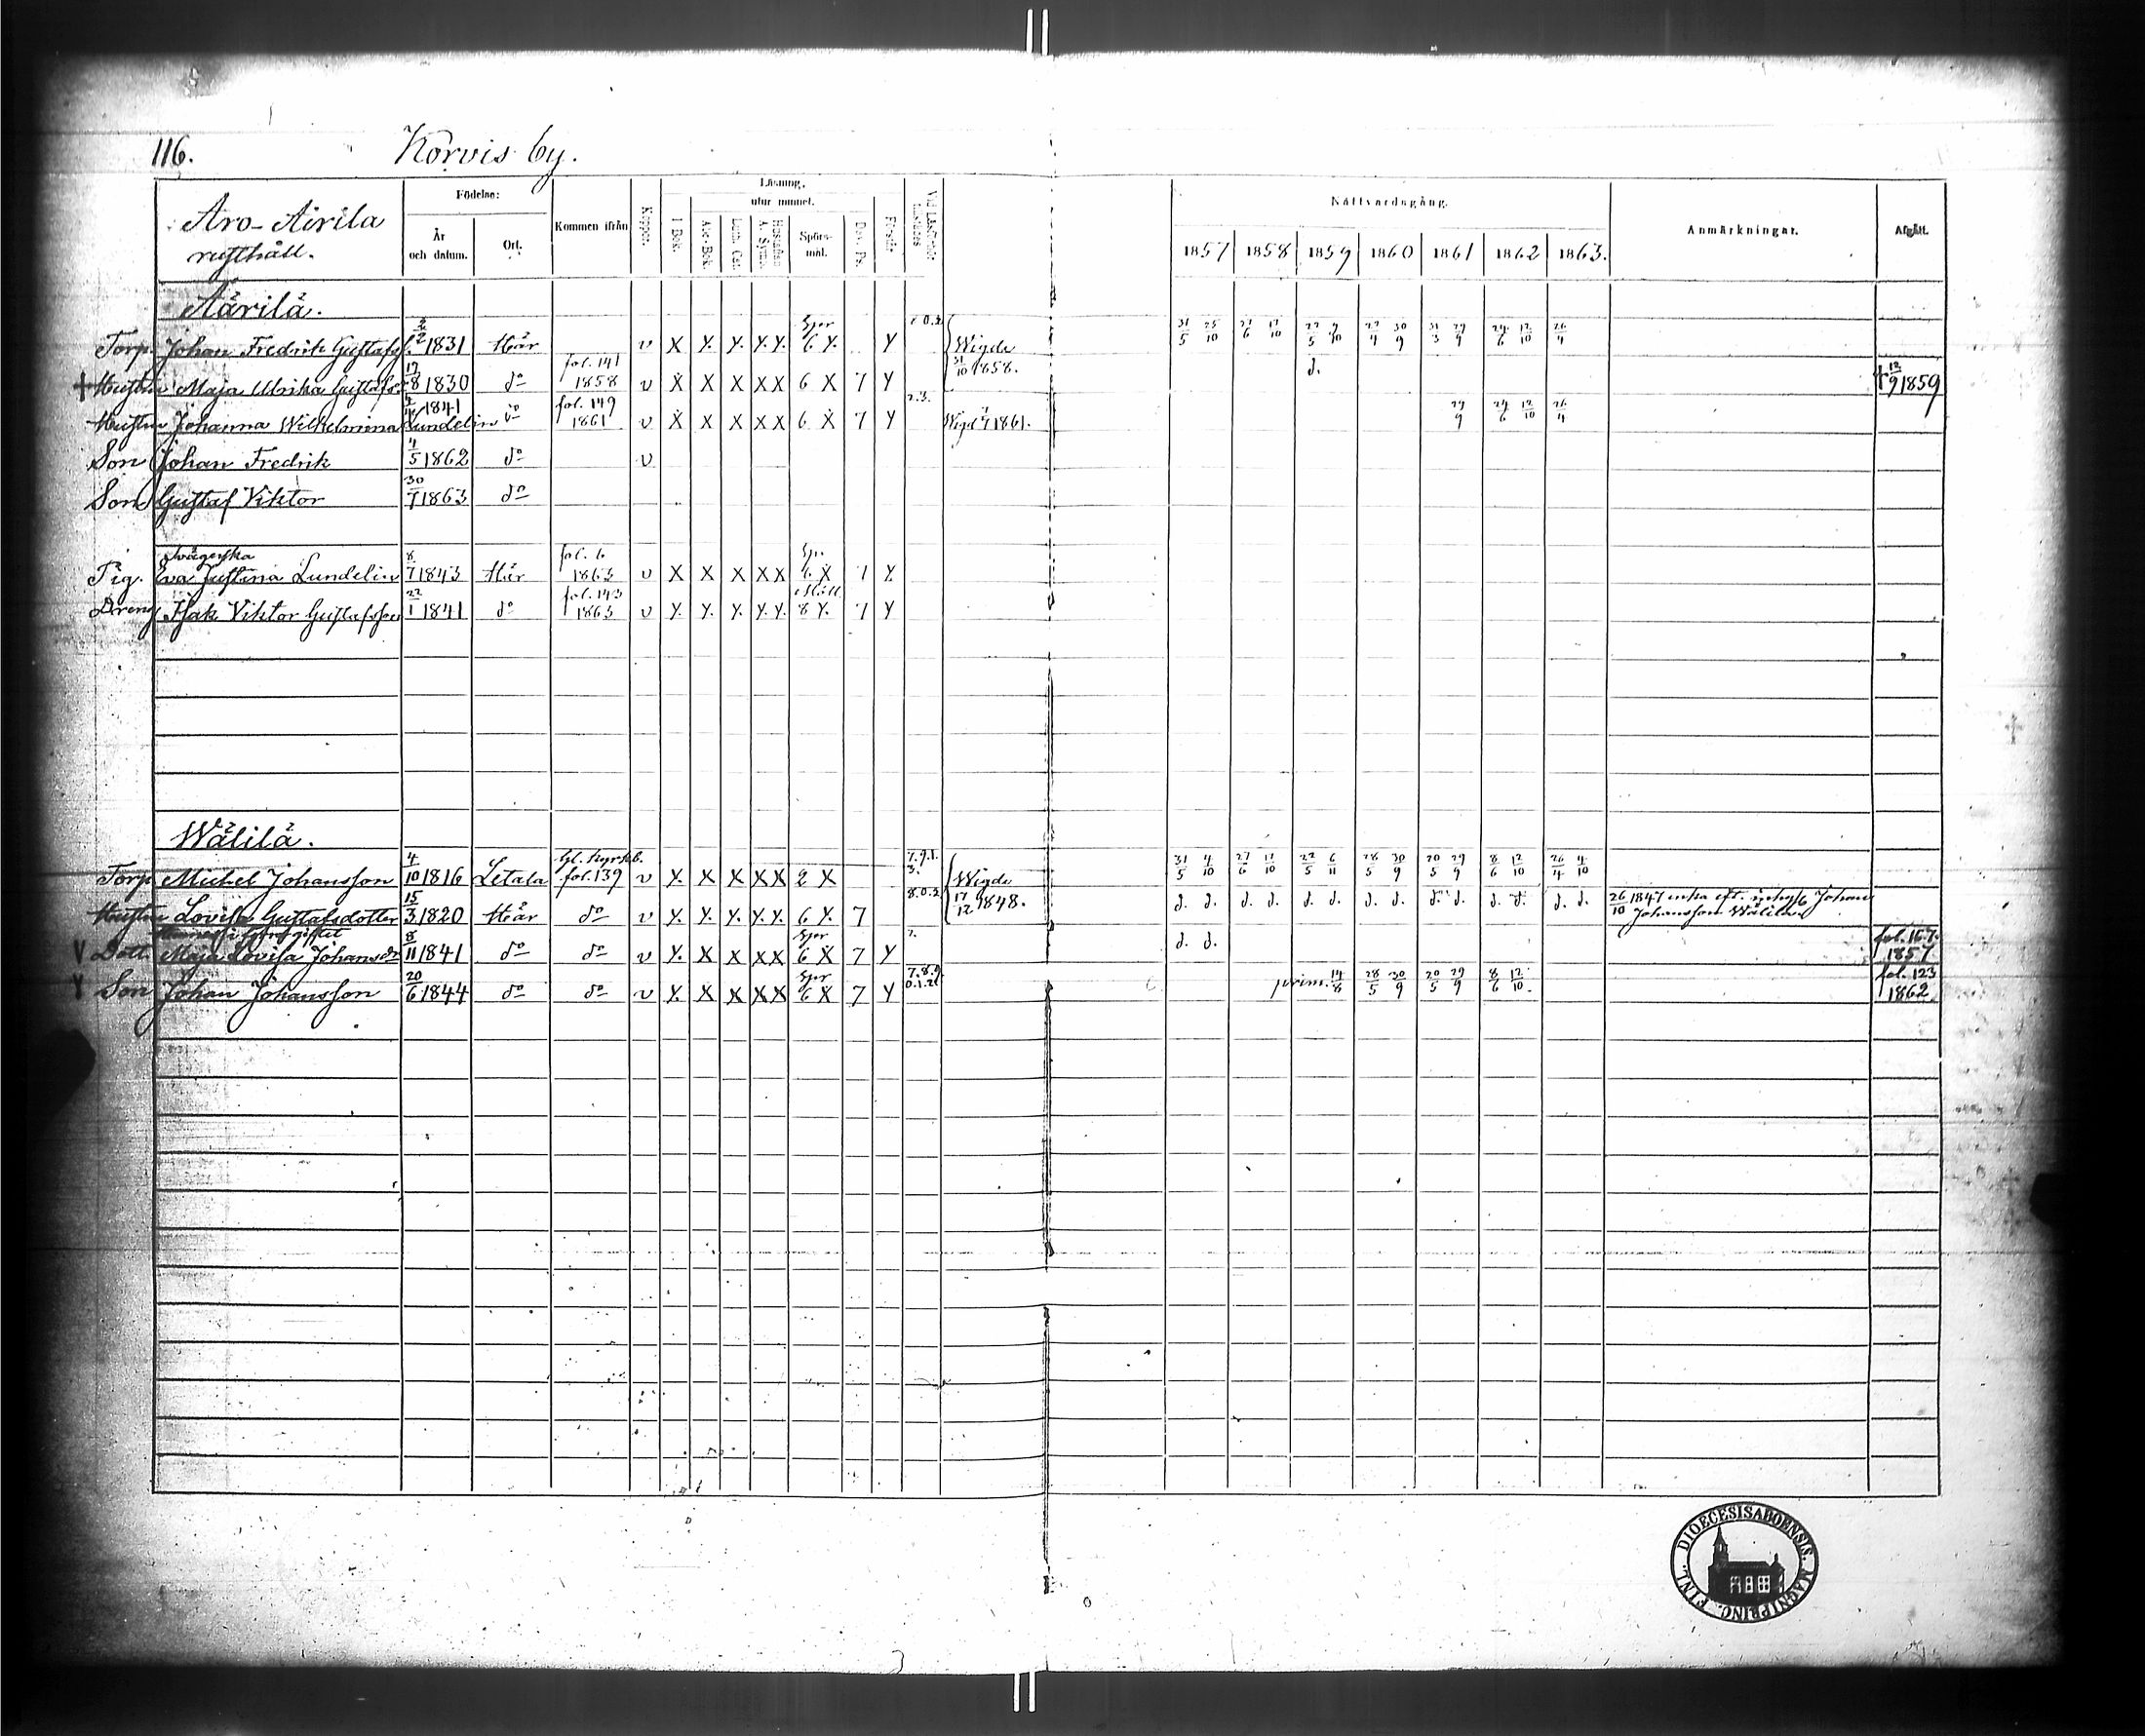 116. Korvis by.
Aro-Äirilä rusthåll.
Födelse:
År och datum.
Ort.
Kommen ifrån
Koppor.
Läsning.
utur minnet.
I Bok.
Abc-Bok.
Luth. Cat.
Hustaflan A. Symb.
Spörs-mål.
Dav. Ps.
Förstår
Nattvardsgång.
1857 1858 1859 1860 1861 1862 1863.
Anmärkningar.
Afgått.
Äärilä.
Torp. Johan Fredrik Gustafss. 1831 Här v X Y. Y. Y.Y. Spör 6 Y. Y 0.2 Wigde 31/10 1858. 31/5 25/10 27/6 17/10 22/5 9/10 30/9 31/3 29/9 29/6 12/10 26/4
+ Hustru Maja Ulrika Gustafsdr 17/8 1830 do fol. 141 1858 v X X X XX 6 X 7 Y d. + 12/9 1859
Hustru Johanna Wilhelmina Lundelin 1841 do fol. 149 1861 v X X X XX 6 X 7 Y 2.3. Wigd 1861. 29/9 29/6 12/10 26/4
Son Johan Fredrik 4/5 1862 do v
Son Gustaf Viktor 30/7 1863 do
Svägerska
Pig. Eva Justina Lundelin 8/7 1843 Här fol. 6 1863 v X X X XX Spör 6 X 7 Y
Dreng Isak Viktor Gustafsson 22/1 1841 do fol. 143 1863 v Y. Y. Y. Y.Y. 8 Y. 7 Y
Wälilä.
Torp. Michel Johansson 4/10 1816 Letala Gl. kyrkb. fol. 139 v Y. X X XX 2 X 7.9.1. 3. Wigde 17/12 1848. 31/5 4/10 27/6 17/10 22/5 6/11 28/5 30/9 20/5 29/9 8/6 12/10 26/4 4/10
Hustru Lovisa Gustafsdotter 15/3 1820 Här do v Y. Y. Y. Y.Y. 6 Y. 7 8.0.2 d. d. d. d. d. d. d. d. d. d. d. d. d. d. 26/10 1847 enka eft. Johan Johansson Wälilä
Hennes i förra giftet
V Dott. Maja Lovisa Johansdr 8/11 1841 do do v Y. X X XX Spör 6 X 7 Y 7. d. d. fol. 167. 1857
Y Son Johan Johansson 20/6 1844 do do v Y. X X XX Spör 6 X 7 Y 7.8.9. 0.1.2 prim. 14/8 28/5 30/9 20/5 29/9 8/6 12/10. fol. 123 1862
DIOECESIS ABOENSIS. MAGNI PRINC. FINL.